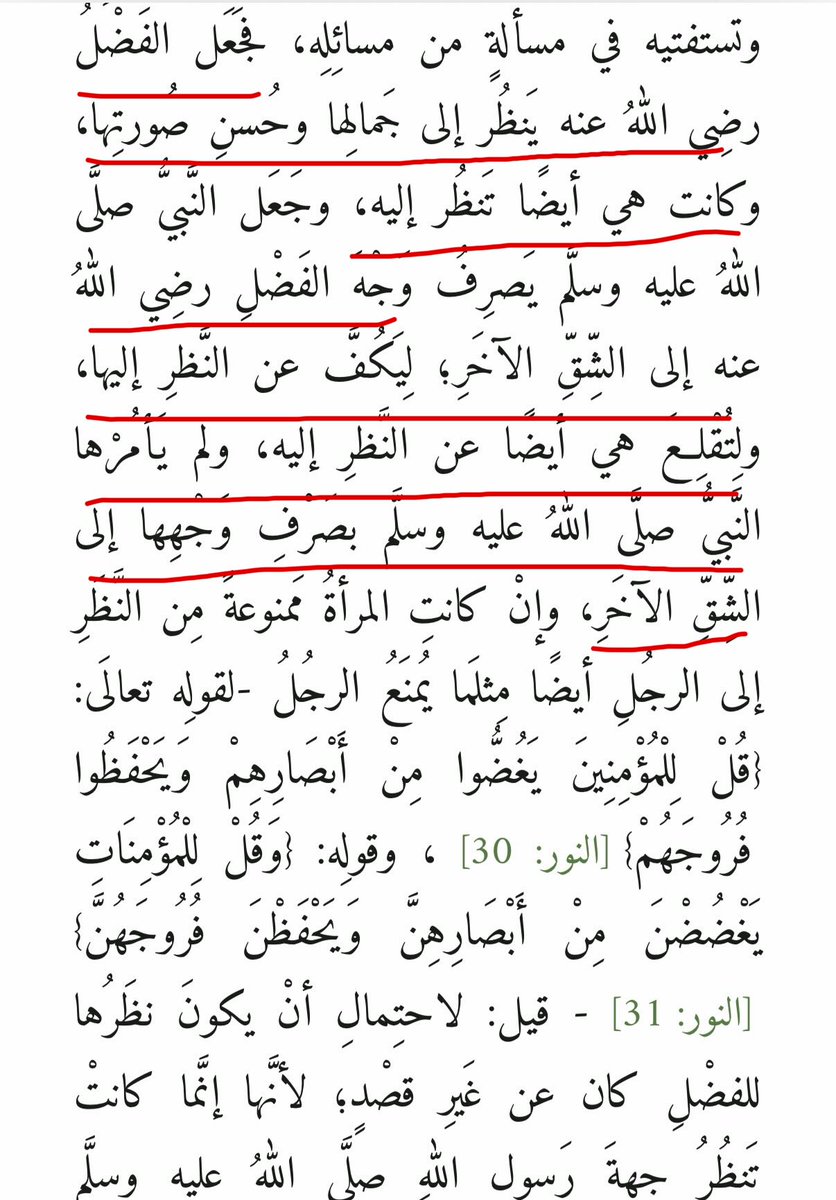 وتستفتيه في مسألةٍ من مسائِلِه، فجَعَل الفَضْلُ
رضِي اللهُ عنه يَنظُر إلى جَمالِها وحُسنِ صُورتِها،
وكانت هي أيضًا تَنظُر إليه، وجَعَل النَّبيُّ صلَّى
اللهُ عليه وسلَّم يَصرِفُ وَجْهَ الفَضْلِ رضِي اللهُ
عنه إلى الشِّقِّ الآخَرِ؛ لِيَكُفَّ عن النَّظرِ إليها،
ولِتُقْلِعَ هي أيضًا عن النَّظرِ إليه، ولم يَأمُرْها
النَّبيُّ صلَّى اللهُ عليه وسلَّم بصَرْفِ وَجْهِها إلى
الشِّقِّ الآخَرِ، وإنْ كانتِ المرأةُ مَمنوعةً مِن النَّظَرِ
إلى الرجُلِ أيضًا مِثلَما يُمنَعُ الرجُلُ -لقولِه تعالَى:
{قُلْ لِلْمُؤْمِنِينَ يَغُضُّوا مِنْ أَبْصَارِهِمْ وَيَحْفَظُوا
فُرُوجَهُمْ} [النور: 30] ، وقولِه: {وَقُلْ لِلْمُؤْمِنَاتِ
يَغْضُضْنَ مِنْ أَبْصَارِهِنَّ وَيَحْفَظْنَ فُرُوجَهُنَّ}
[النور: 31] - قيل: لاحتِمالِ أنْ يكونَ نظَرُها
للفضْلِ كان عن غَيرِ قصْدٍ؛ لأنَّها إنَّما كانتْ
تَنظُرُ جهةَ رَسولِ اللهِ صلَّى اللهُ عليه وسلَّم